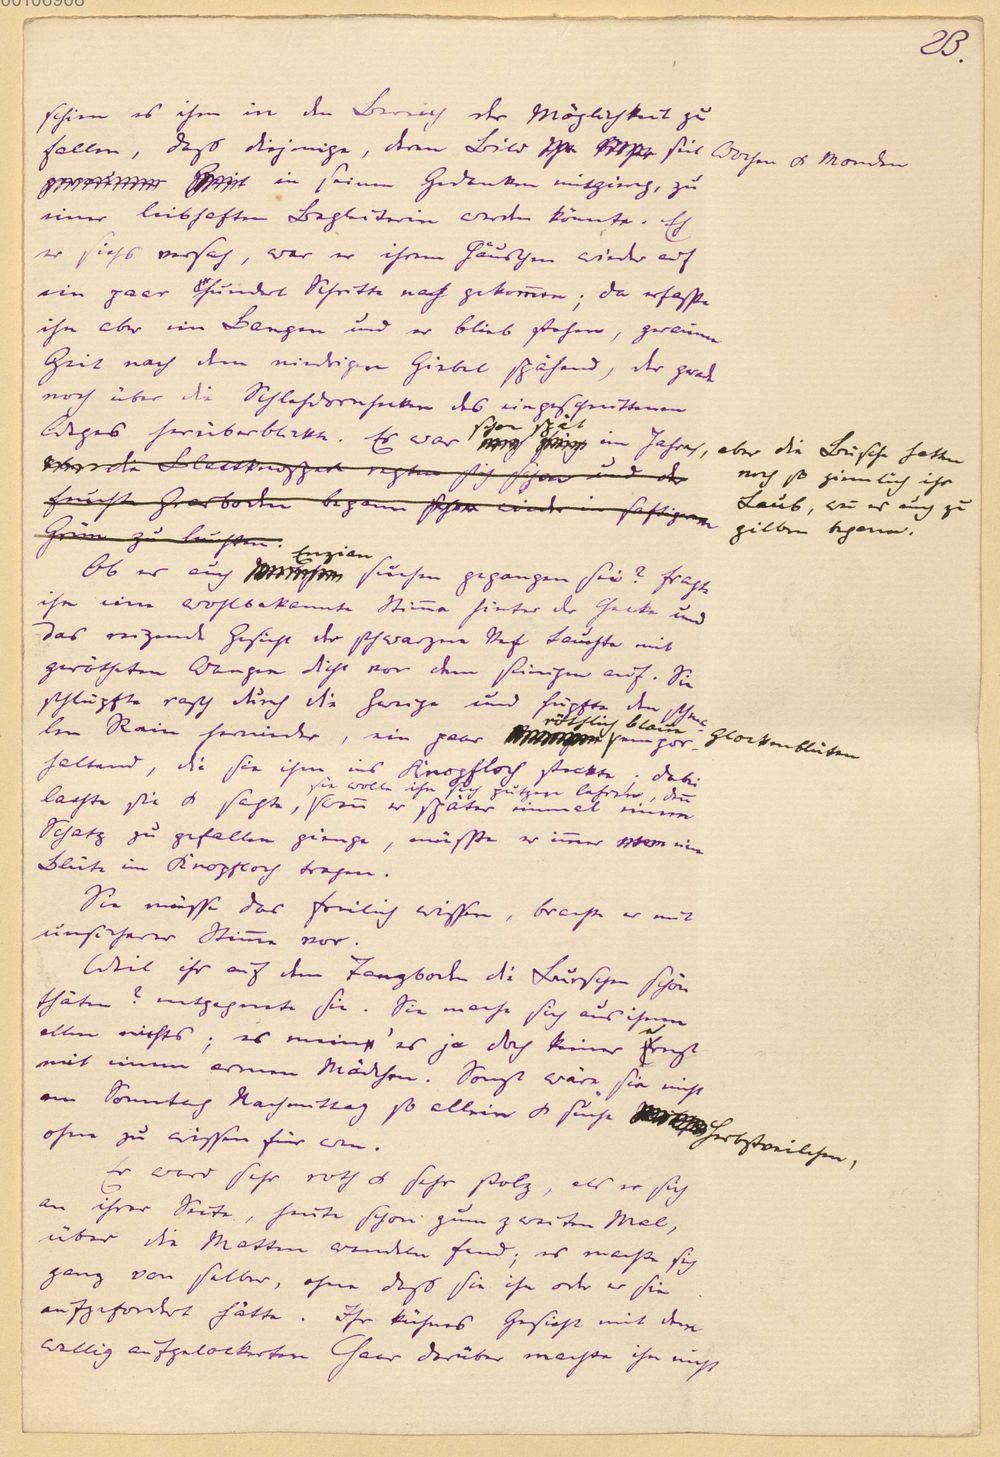 23.
schien es ihm in den Bereich der Möglichkeit zu
fallen, daß diejenige, deren Bild seit Wochen & Monden
in seinen Gedanken mitgieng, zu
einer leibhaften Begleiterin werden könnte. Eh
er sichs versah, war er ihrem Häuschen wieder auf
ein paar hundert Schritte nah gekom̅en; da erfaßte
ihn aber ein Bangen und er blieb stehen, geraume
Zeit nach dem niedrigen Giebel spähend, der grade
noch über die Schlehdornhecken des eingeschnittenen
Weges herüberblickte. Er war schon spät im Jahres, aber die Büsche hatten
noch so ziemlich ihr
Laub, wen̅ es auch zu
gilben begann.
wurde Blattknospen regten sich schon und der
feuchte Grasboden begann schon wieder in saftigem
Grün zu leuchten.
Ob er auch Enzian suchen gegangen sei? fragte
ihn eine wohlbekannte Stim̅e hinter der Hecke und
das reizende Gesicht der schwarzen Vef tauchte mit
gerötheten Wangen dicht vor dem seinigen auf. Sie
schlüpfte rasch durch die Zweige und hüpfte den schma-
len Rain hernieder, ein paar röthlich blaue Glockenblüten empor-
haltend, die sie ihm ins Knopfloch steckte; dabei
lachte sie & sagte, sie wolle ihn sich putzen lehren, den̅
wen̅ er später einmal einem
Schatz zu gefallen gienge, müsste er im̅er eine
Blüte im Knopfloch tragen.
Sie müsse das freilich wissen, brachte er mit
unsicherer Stim̅e vor.
Weil ihr auf dem Tanzboden die Burschen schön
thäten? entgegnete sie. Sie mache sich aus ihnen
allen nichts; es mein' es ja doch keiner ehrlich
mit einem armen Mädchen. Sonst wäre sie nicht
am Sonntag Nachmittag so allein & suche Herbstveilchen,
ohne zu wissen für wen.
Er ward sehr roth & sehr stolz, als er sich
an ihrer Seite, heute schon zum zweiten Mal,
über die Matten wandeln fand; es machte sich
ganz von selber, ohne daß sie ihn oder er sie
aufgefordert hätte. Ihr kühnes Gesicht mit dem
wellig aufgelockerten Haar darüber machte ihn nicht